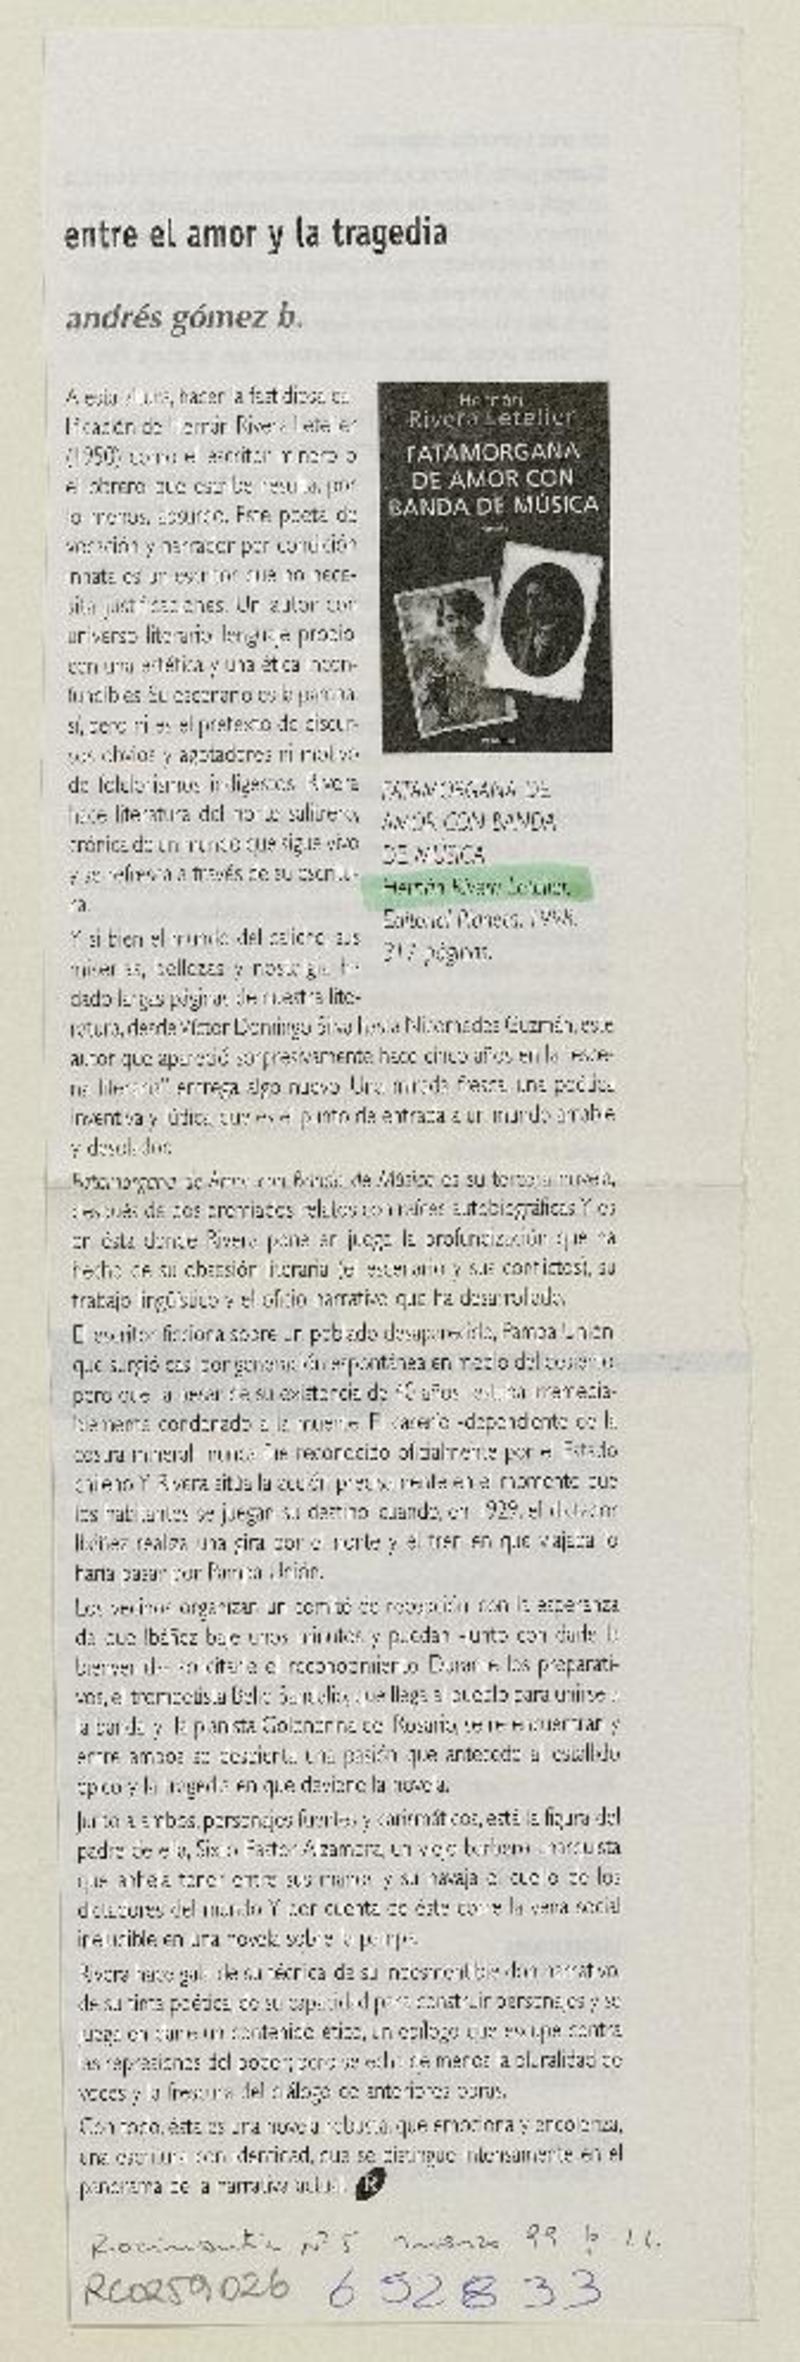 entre el amor y la tragedia
andrés gómez b.
A esta altura, hacer la fastidiosa ca-
lificación de Hernán Rivera Letelier
(1950) como el escritor minero o
el obrero que escribe resulta, por
lo menos, absurdo. Este poeta de
vocación y narrador por condición
innata es un escritor que no nece-
sita justificaciones. Un autor con
universo literario, lenguaje propio,
con una estética y una ética incon-
fundibles. Su escenario es la pampa,
sí, pero ni es el pretexto de discur-
sos obvios y agotadores ni motivo
de folclorismos indigestos. Rivera
hace literatura del norte salitrero,
crónica de un mundo que sigue vivo
y se refresca a través de su escritu-
ra.
Y si bien el mundo del caliche, sus
miserias, bellezas y nostalgia ha
dado largas páginas de nuestra lite-
ratura, desde Víctor Domingo Silva hasta Nicomedes Guzmán, este
autor que apareció sorpresivamente hace cinco años en la "esce-
na literaria" entrega algo nuevo. Una mirada fresca, una poética
inventiva y lúdica, que es el punto de entrada a un mundo amable
y desolador.
Hernán
Rivera Letelier
FATAMORGANA
DE AMOR CON
BANDA DE MÚSICA
FATAMORGANA DE
AMOR CON BANDA
DE MÚSICA
Hernán Rivera Letelier,
Editorial Planeta, 1998.
217 páginas.
Fatamorgana de Amor con Banda de Música es su tercera novela,
después de dos premiados relatos con raíces autobiográficas. Y es
en ésta donde Rivera pone en juego la profundización que ha
hecho de su obsesión literaria (el escenario y sus conflictos), su
trabajo lingüístico y el oficio narrativo que ha desarrollado.
El escritor ficciona sobre un poblado desaparecido, Pampa Unión,
que surgió casi por generación espontánea en medio del desierto
pero que a pesar de su existencia de 40 años estaba irremedia-
blemente condenado a la muerte. El caserío -dependiente de la
costra mineral- nunca fue reconocido oficialmente por el Estado
chileno. Y Rivera sitúa la acción precisamente en el momento que
los habitantes se juegan su destino: cuando, en 1929, el dictador
Ibáñez realiza una gira por el norte y el tren en que viajaba lo
haría pasar por Pampa Unión.
Los vecinos organizan un comité de recepción, con la esperanza
de que Ibáñez baje unos minutos y puedan -junto con darle la
bienvenida- solicitarle el reconocimiento. Durante los preparati-
vos, el trompetista Bello Sandalio, que llega al pueblo para unirse a
la banda, y la pianista Golondrina del Rosario, se reencuentran y
entre ambos se despierta una pasión que antecede al estallido
épico y la tragedia en que deviene la novela.
Junto a ambos, personajes fuertes y carismáticos, está la figura del
padre de ella, Sixto Pastor Alzamora, un viejo barbero anarquista
que anhela tener entre sus manos y su navaja el cuello de los
dictadores del mundo. Y por cuenta de éste corre la vena social
ineludible en una novela sobre la pampa.
Rivera hace gala de su técnica, de su indesmentible don narrativo,
de su tinta poética, de su capacidad para construir personajes y se
juega en darle un contenido ético, un epílogo que escupe contra
las represiones del poder; pero se echa de menos la pluralidad de
voces y la frescura del diálogo de anteriores obras.
Con todo, ésta es una novela robusta, que emociona y encoleriza,
una escritura con identidad, que se distingue intensamente en el
panorama de la narrativa actual. R
Rocinante Nº 5 marzo 99 p.
RC0259026 652833